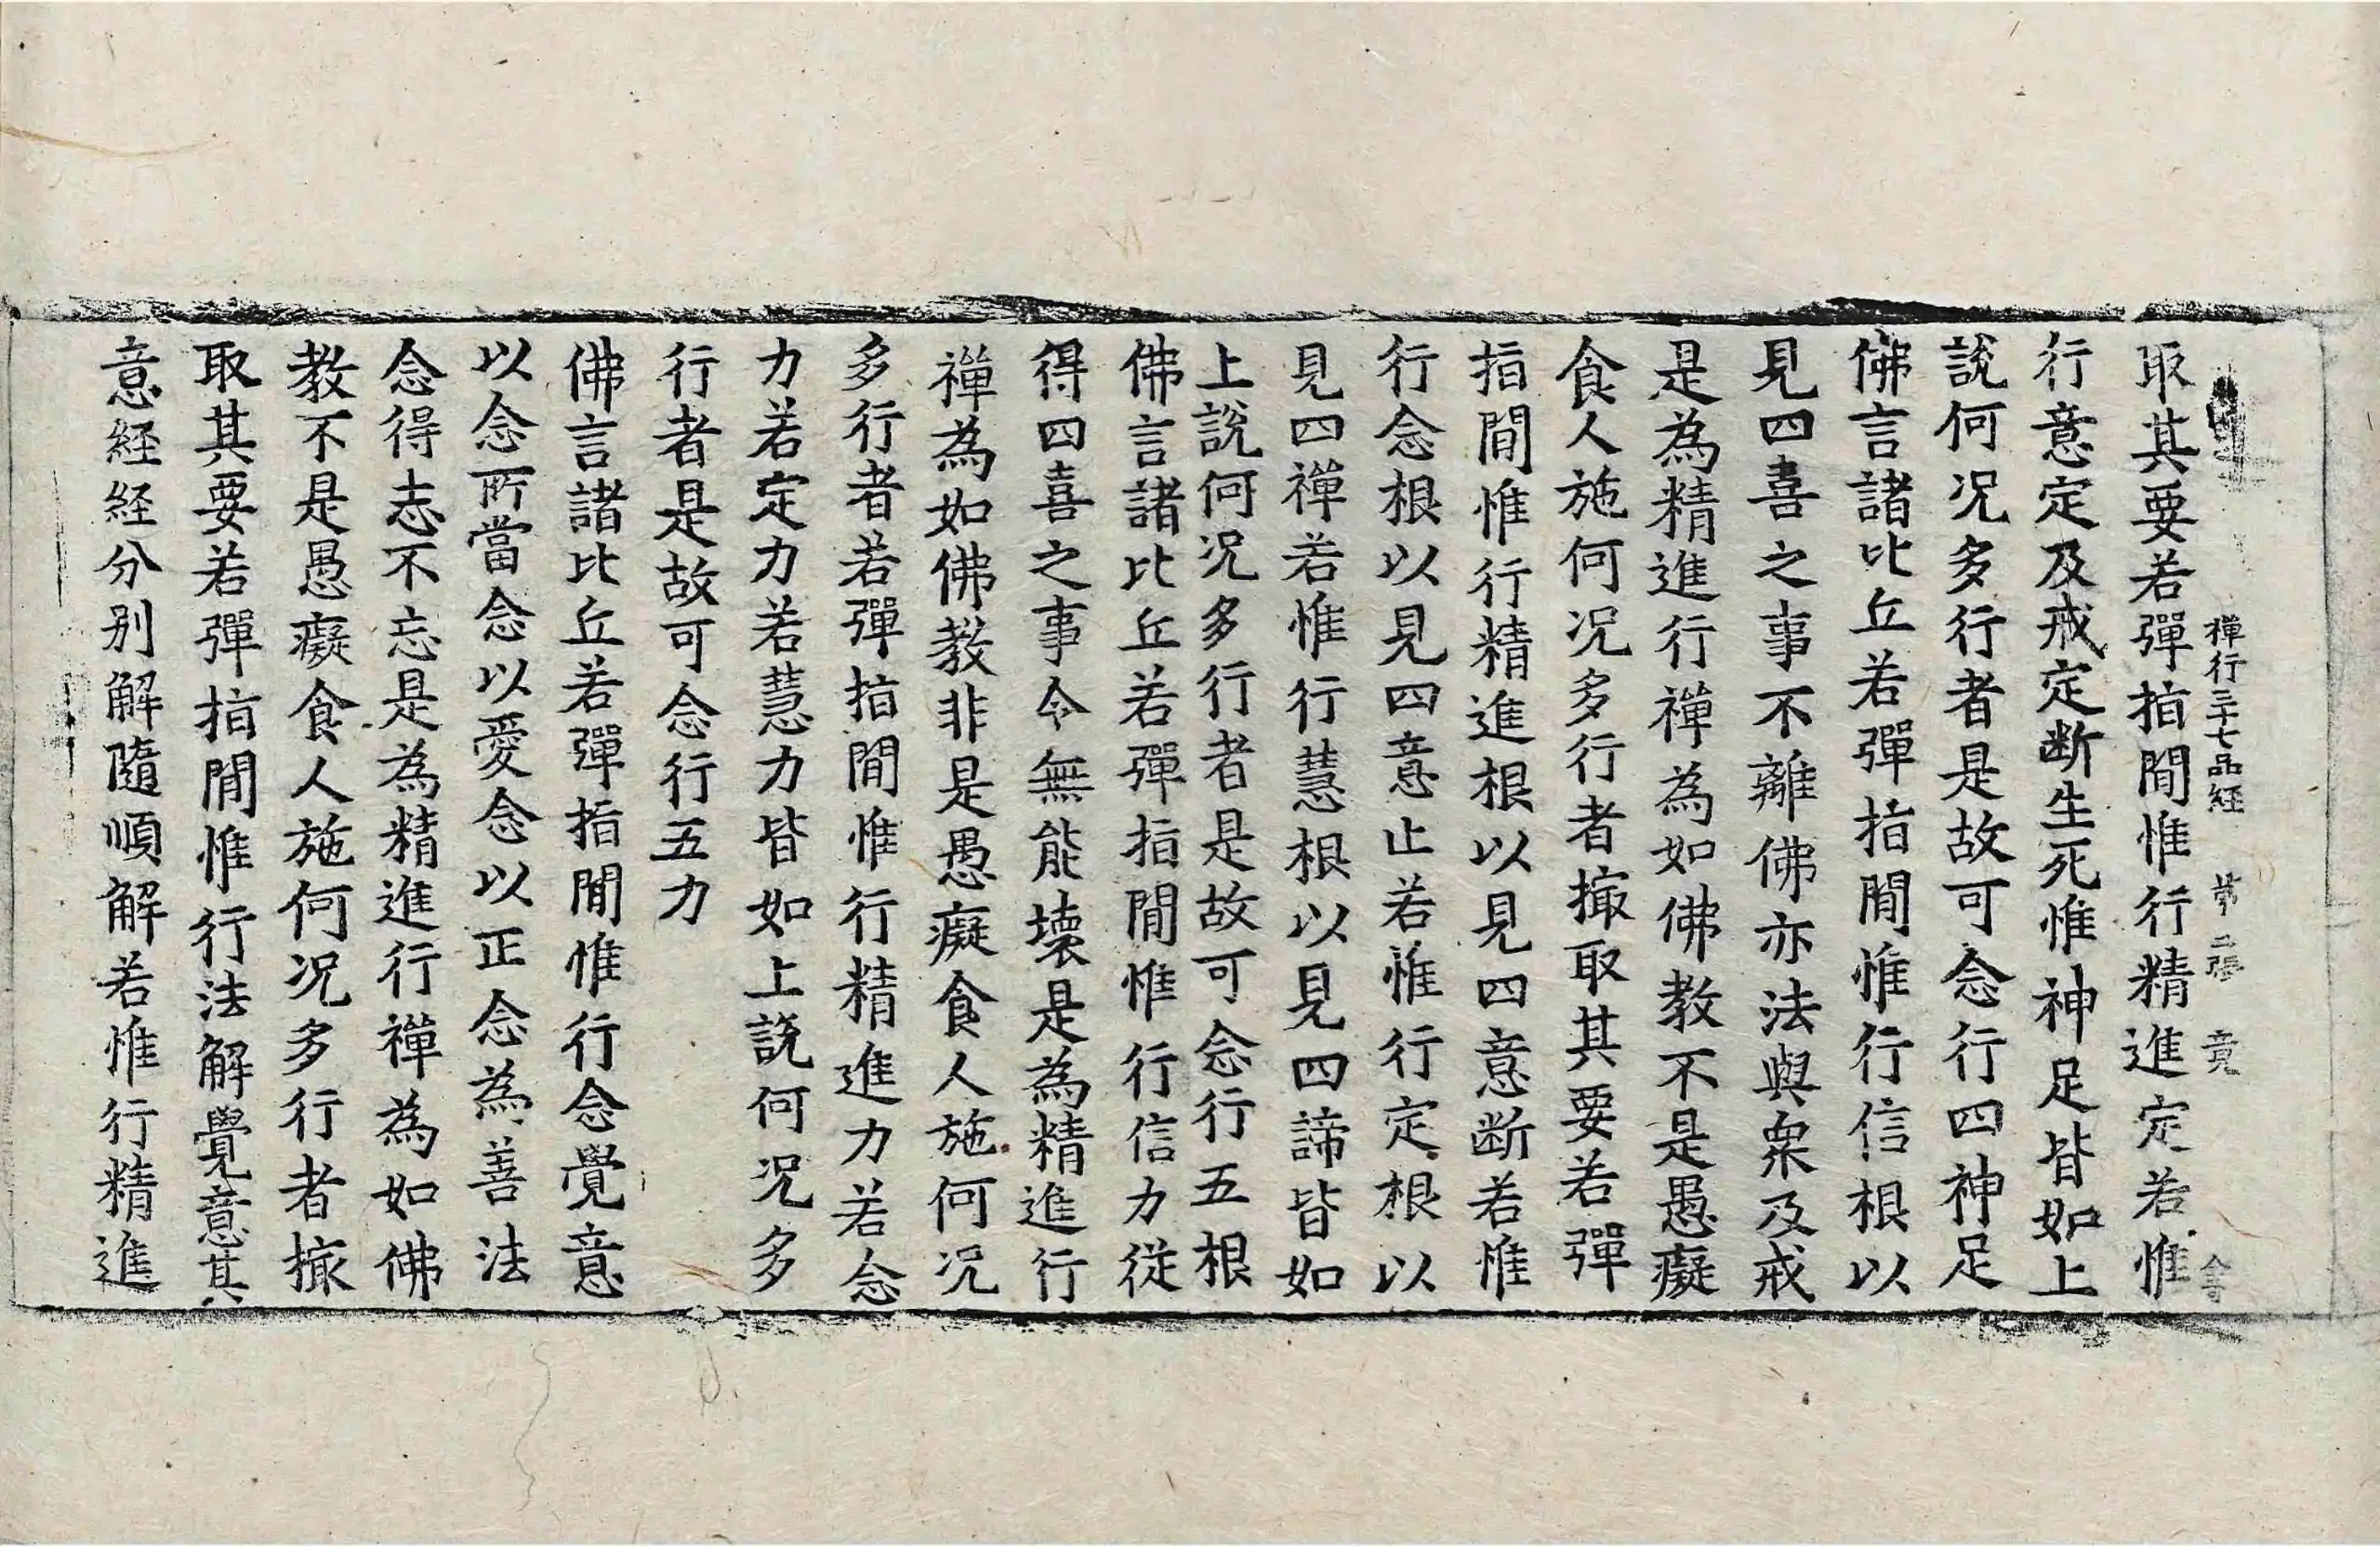 禪行三十七品經　第二張　竟
取其要若彈指閒惟行精進定若惟
行意定及戒定断生死惟神足皆如上
說何况多行者是故可念行四神足
佛言諸比丘若彈指閒惟行信根以
見四喜之事不離佛亦法與衆及戒
是為精進行禪為如佛教不是愚癡
食人施何况多行者撮取其要若彈
指閒惟行精進根以見四意断若惟
行念根以見四意止若惟行定根以
見四禪若惟行慧根以見四諦皆如
上說何况多行者是故可念行五根
佛言諸比丘若彈指閒惟行信力從
得四喜之事令無能壊是為精進行
禪為如佛教非是愚癡食人施何况
多行者若彈指閒惟行精進力若念
力若定力若慧力皆如上說何况多
行者是故可念行五力
佛言諸比丘若彈指閒惟行念覺意
以念所當念以愛念以正念為善法
念得志不忘是為精進行禪為如佛
教不是愚癡食人施何况多行者撮
取其要若彈指閒惟行法解覺意其
意経経分别解隨順解若惟行精進